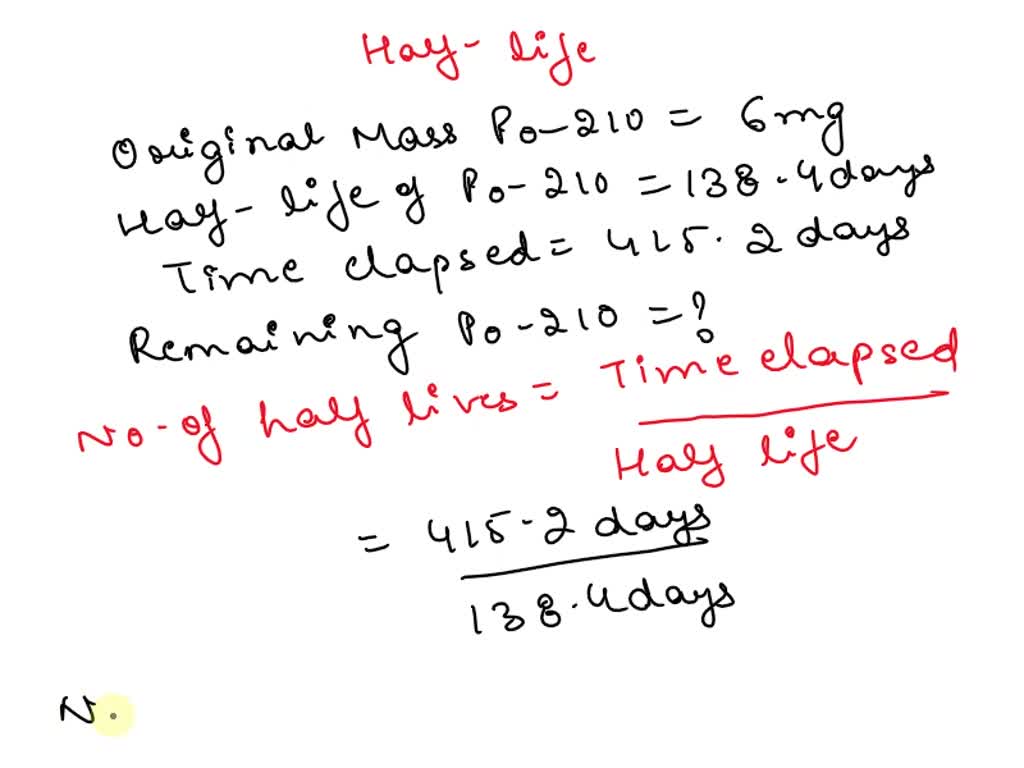 Half-life
Original Mass Po-210 = 6mg
Half-life of Po-210 = 138.4days
Time elapsed = 415.2 days
Remaining Po-210 = ?
No-of half lives = Time elapsed
Half life
= 415.2 days
138.4days
N